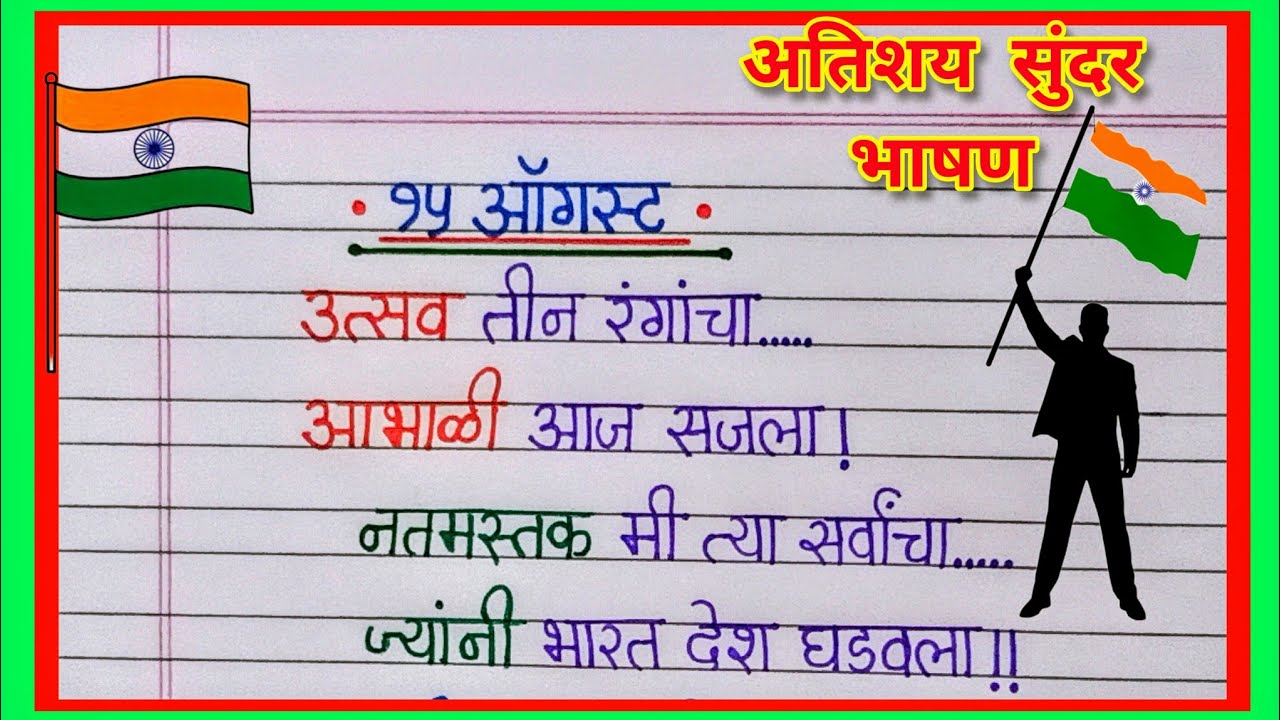 अतिशय सुंदर
भाषण
• १५ ऑगस्ट •
उत्सव तीन रंगांचा.....
आभाळी आज सजला!
नतमस्तक मी त्या सर्वांचा.....
ज्यांनी भारत देश घडवला!!